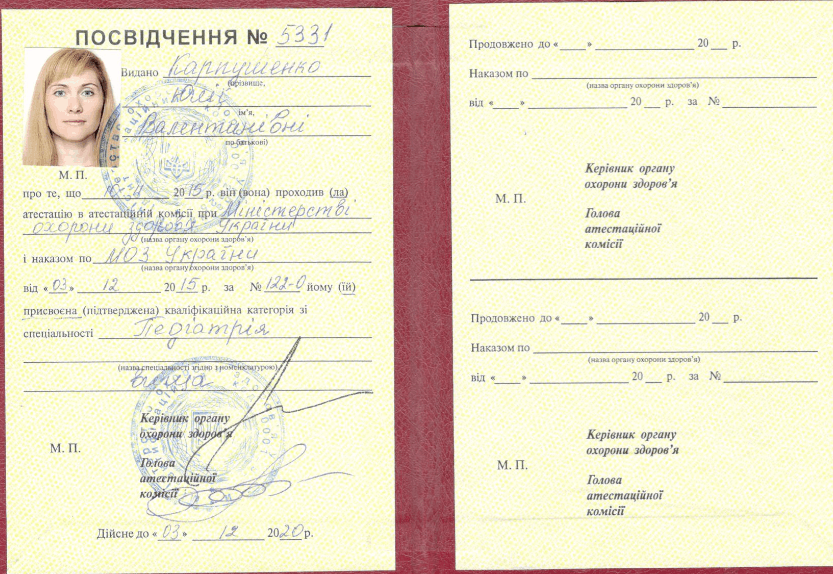 ПОСВІДЧЕННЯ № 5331
Видано Карпушенко
(прізвище,
Юлії
ім'я,
Валентинівні
по-батькові)
М. П.
про те, що 11 2015 р. він (вона) проходив (ла)
атестацію в атестаційній комісії при Міністерстві
охорони здоровя України
(назва органу охорони здоров'я)
і наказом по МОЗ України
(назва органу охорони здоров'я)
від «03» 12 2015 р. за № 122-О йому (їй)
присвоєна (підтверджена) кваліфікаційна категорія зі
спеціальності Педіатрія
(назва спеціальності згідно з номенклатурою)
вища
Керівник органу
охорони здоров'я
М. П.
Голова
атестаційної
комісії
Дійсне до «03» 12 2020 р.
Продовжено до «____» ____ 20 __ р.
Наказом по ____
(назва органу охорони здоров'я)
від «____» ____ 20 __ р. за № ____
Керівник органу
охорони здоров'я
М. П.
Голова
атестаційної
комісії
Продовжено до «____» ____ 20 __ р.
Наказом по ____
(назва органу охорони здоров'я)
від «____» ____ 20 __ р. за № ____
Керівник органу
охорони здоров'я
М. П.
Голова
атестаційної
комісії